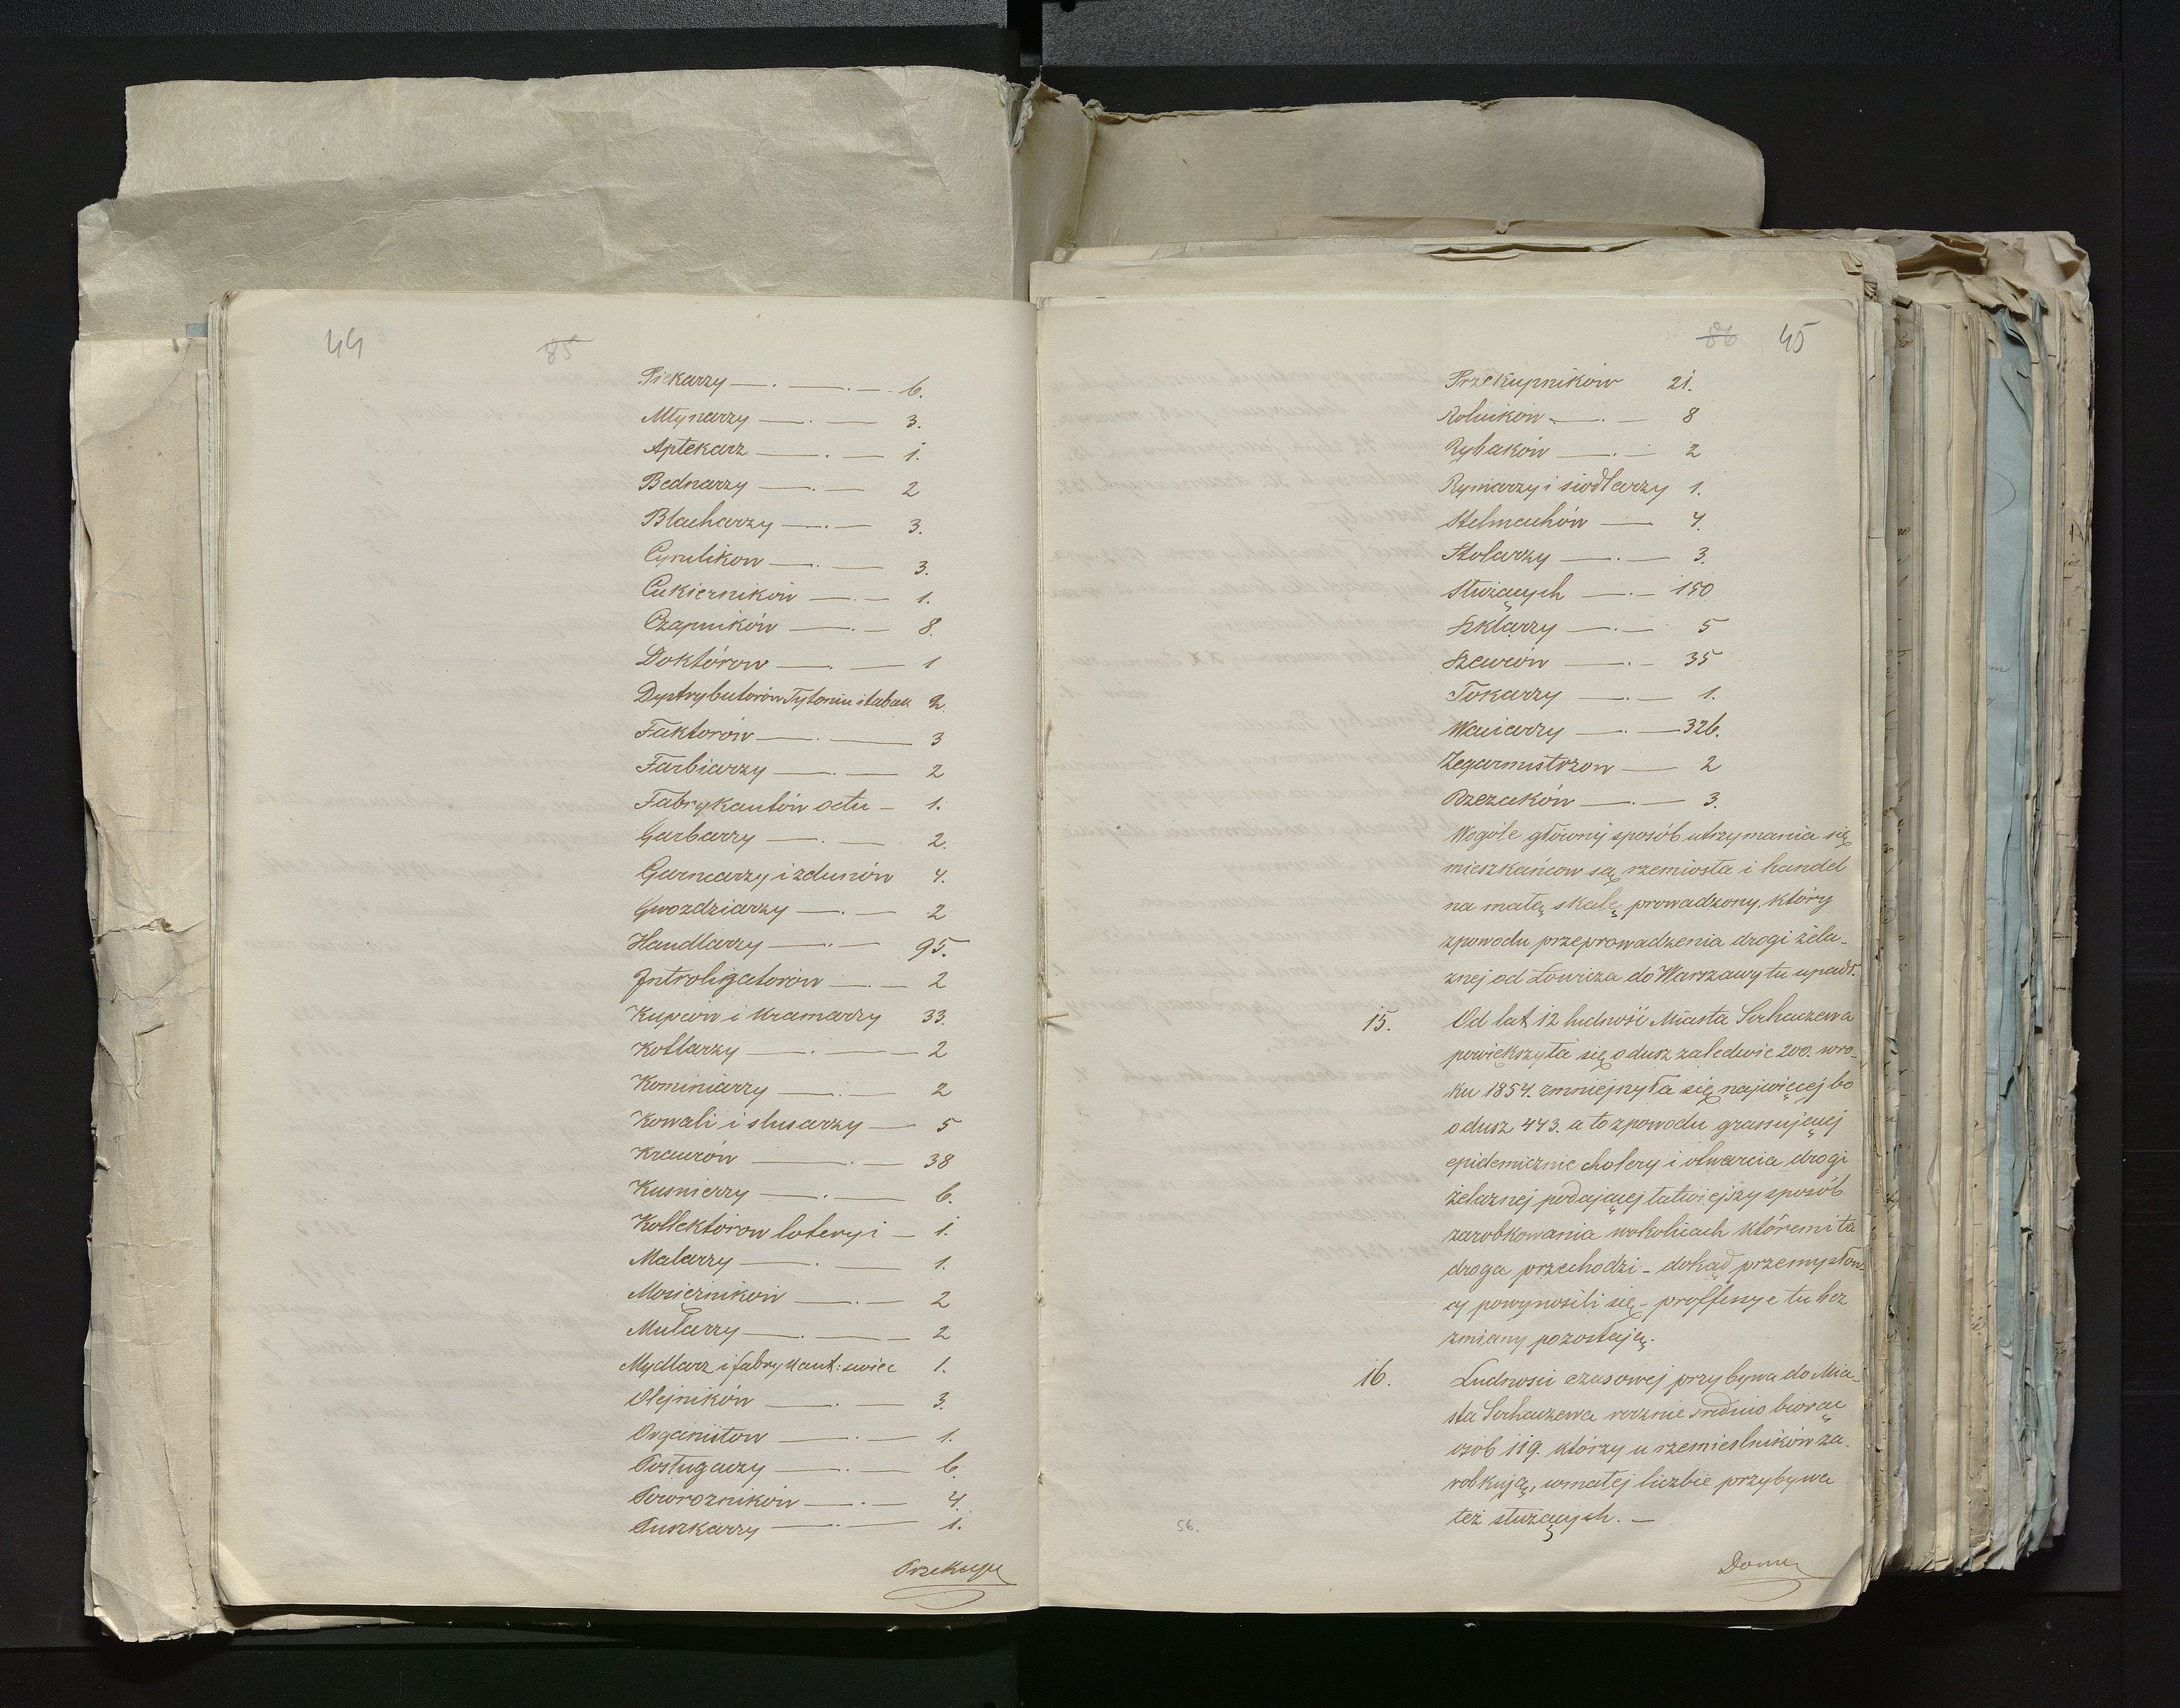 44
85
Piekarzy — . — . — 6.
Młynarzy — . — 3.
Aptekarz — . — 1.
Bednarzy — . — 2
Blacharzy — . — 3.
Cyrulikow — . — 3.
Cukierników — . — 1.
Czapników — . — 8.
Doktórow — . — 1
Dystrybutorów Tytoniu i tabak 2.
Faktorów — . — 3
Farbiarzy — . — 2
Fabrykantów octu — 1.
Garbarzy — . — 2.
Garncarzy i zdunów 4.
Gwozdziarzy — . — 2
Handlarzy — . — 95.
Introligatorów — . — 2
Kupców i kramarzy 33.
Kotlarzy — . — 2
Kominiarzy — . — 2
Kowali i slusarzy — 5
Krawców — . — 38
Kusnierzy — . — 6.
Kollektórow loteryi — 1.
Malarzy — . — 1.
Mosiężników — . — 2
Mularzy — . — 2
Mydlarz i fabrykant: swiec 1.
Olejników — . — 3.
Organistow — . — 1.
Posługaczy — . — 6.
Powrozników — . — 4.
Puszkarzy — . — 1.
Przekup
86 45
Przekupników 21.
Rolników — . — 8
Rybaków — . — 2
Rymarzy i siodlarzy 1.
Stelmachów — 4.
Stolarzy — . — 3.
Służących — . — 150
Szklarzy — . — 5
Szewców — . — 35
Tokarzy — . — 1.
— . — 326.
Zegarmistrzow — 2
Rzezaków — . — 3.
Wogóle głowny sposób utrzymania się
mieszkańcow są rzemiosła i handel
na małą skalę prowadzony, który
zpowodu przeprowadzenia drogi żela-
znej od Łowicza do Warszawy tu upadł.
15. Od lat 12 ludność Miasta Sochaczewa
powiększyła się o dusz zaledwie 200. wro-
ku 1854. zmniejszyła się najwięcej bo
o dusz 443. a to zpowodu grassującej
epidemicznie cholery i otwarcia drogi
żelaznej podającej łatwiejszy sposób
zarobkowania wokolicach któremi ta
droga przechodzi – dokąd przemysłow-
cy powynosili się – proffessye tu bez
zmiany pozostają.
16. Ludnosci czasowej przybywa do Mia-
sta Sochaczewa rocznie srednio biorąc
osób 119. którzy u rzemieslników za-
robkują, wmałej liczbie przybywa
też służących. —
56.
Domy